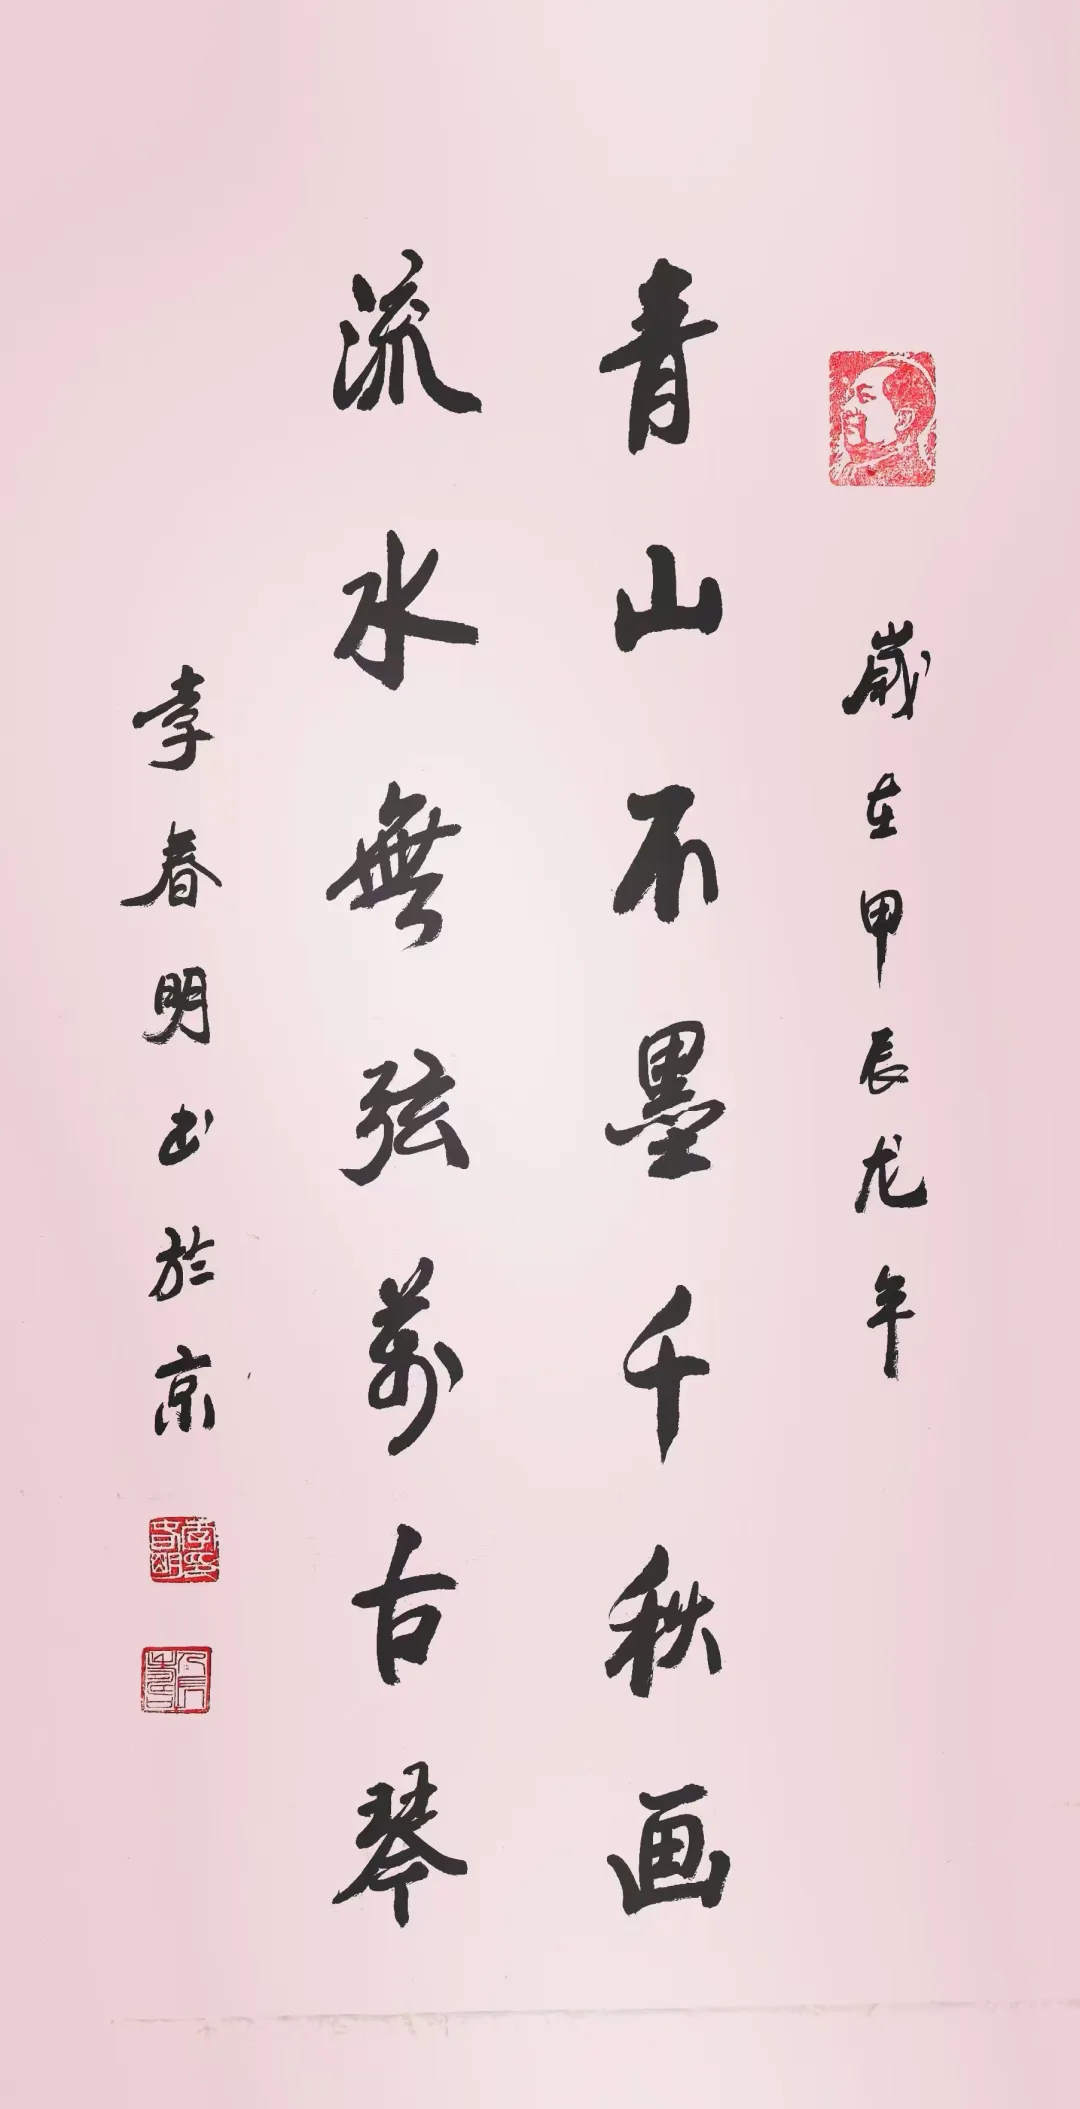 歲在甲辰龙年
青山不墨千秋画
流水無弦萬古琴
李春明书於京